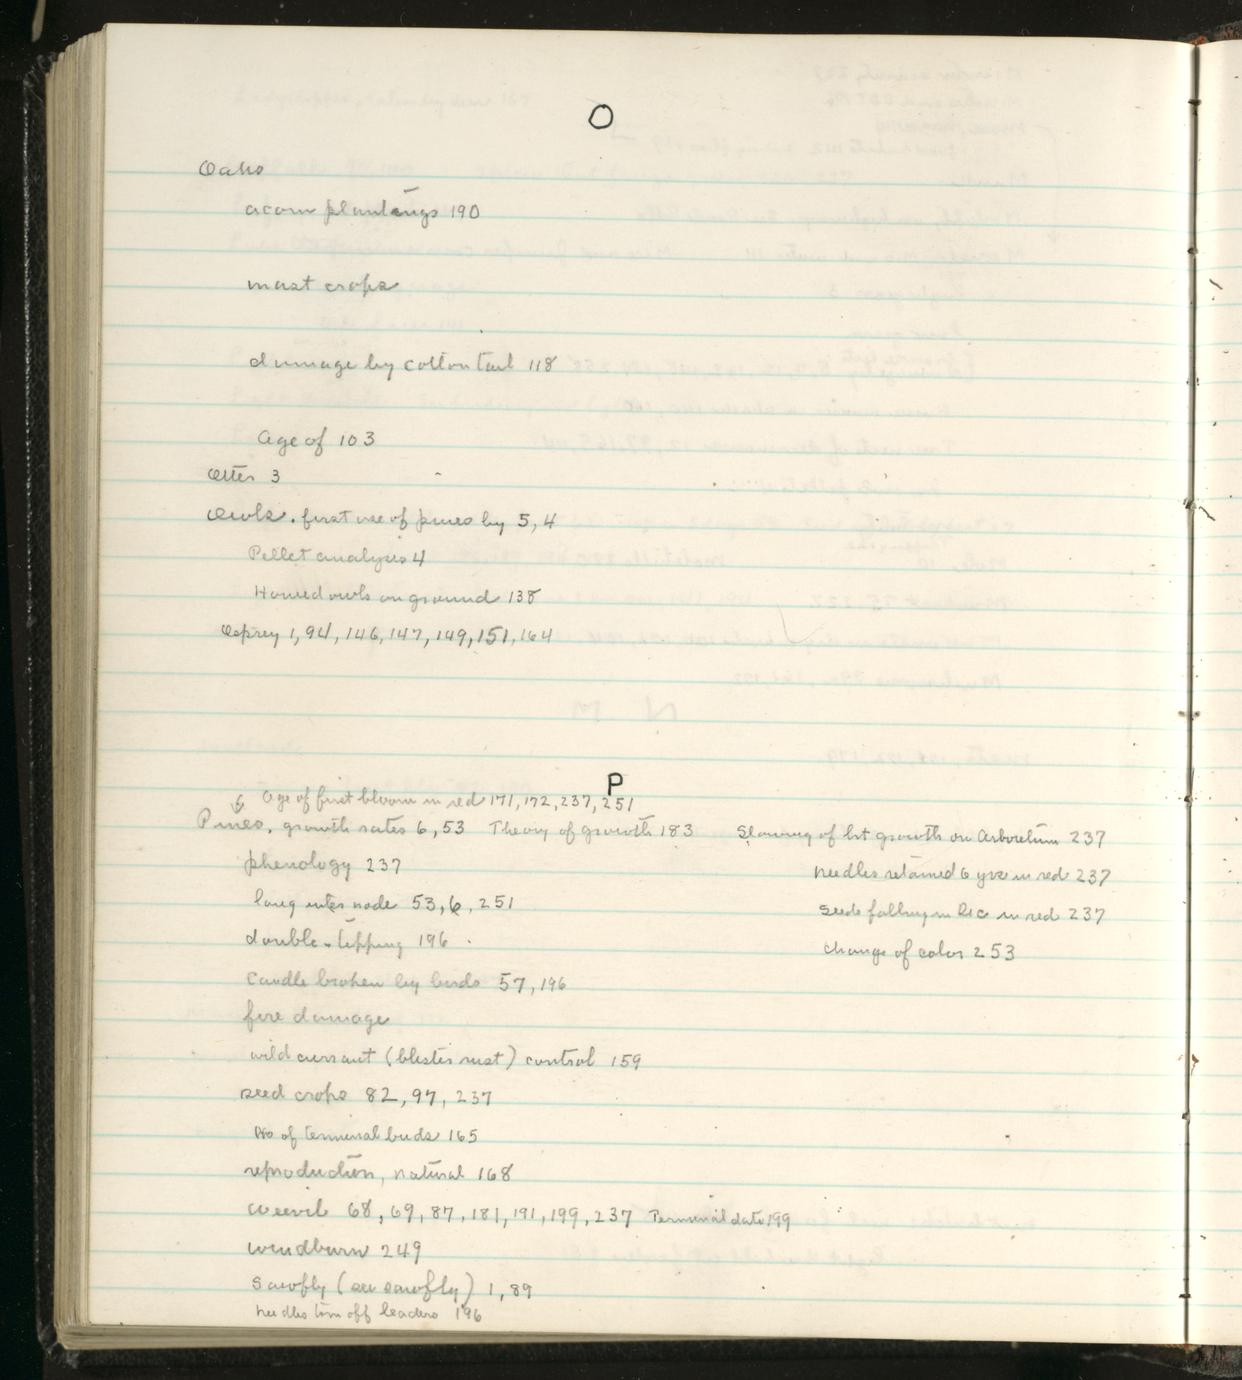 O
Oaks
acorn plantings 190
mast crops
damage by cottontail 118
Age of 103
Otter 3
Owls. first use of pines by 5, 4
Pellet analysis 4
Horned owls on ground 138
Osprey 1, 94, 146, 147, 149, 151, 164
P
Age of first bloom in red 171, 172, 237, 251
Pines, growth rates 6, 53 Theory of growth 183 Slowing of ht growth on Arboretum 237
phenology 237 needles retained 6 yrs in red 237
long internode 53, 6, 251 Seeds falling in Dec in red 237
double-topping 196 change of color 253
Candle broken by birds 57, 196
fire damage
wild currant (blister rust) control 159
seed crops 82, 97, 237
No of terminal buds 165
reproduction, natural 168
weevil 68, 69, 87, 181, 191, 199, 237 Perennial data 199
windburn 249
Sawfly (see sawfly) 1, 89
needles torn off leaders 196